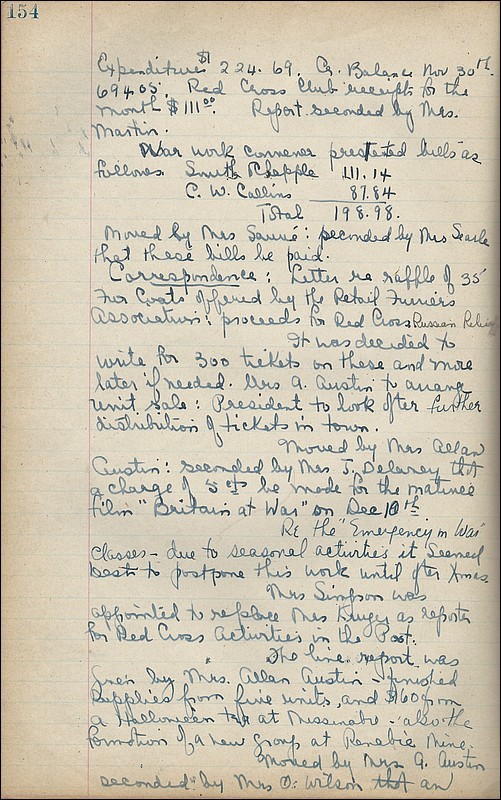 154
Expenditures $224.69. Cr. Balance Nov 30th
694.05. Red Cross Club receipts for the
month $111.00. Report seconded by Mrs.
Martin.
War work convener presented bills as
follows Smith Chapple 111.14
C. W. Collins 87.84
Total 198.98.
Moved by Mrs : seconded by Mrs Searle
that these bills be paid.
Correspondence: Letter re raffle of 35
Fur Coats offered by the Retail Furriers
Association: proceeds for Red Cross Russian Relief
It was decided to
write for 300 tickets on these and more
later if needed. Mrs A. Austin to arrange
unit sale: President to look after further
distribution of tickets in town.
Moved by Mrs Allan
Austin: seconded by Mrs J. Delaney that
a charge of 5 cts be made for the matinee
film "Britain at War" on Dec 10th
Re the "Emergency in War"
Classes - due to seasonal activities it seemed
best to postpone this work until after Xmas
Mrs Simpson was
appointed to replace Mrs as reporter
for Red Cross Activities in the Post.
The line report was
given by Mrs. Allan Austin - finished
supplies from five units and $60 from
a Halloween tea at Missinabie - also the
formation of a new group at Renabie Mine.
Moved by Mrs A. Austin
seconded by Mrs O. Wilson that an